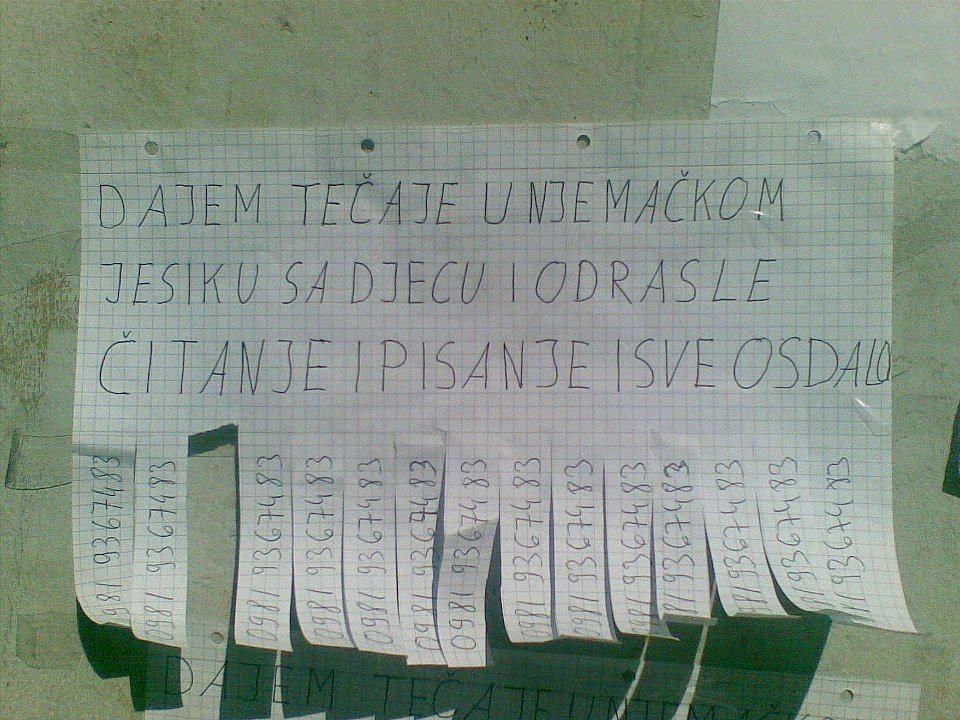 DAJEM TEČAJE U NJEMAČKOM
JESIKU SA DJECU I ODRASLE
ČITANJE I PISANJE I SVE OSDALO
0981 9367483
0981 9367483
0981 9367483
0981 9367483
0981 9367483
0981 9367483
0981 9367483
0981 9367483
0981 9367483
0981 9367483
9367483
9367483
9367483
9367483
DAJEM TEČAJE U NJEMAČK